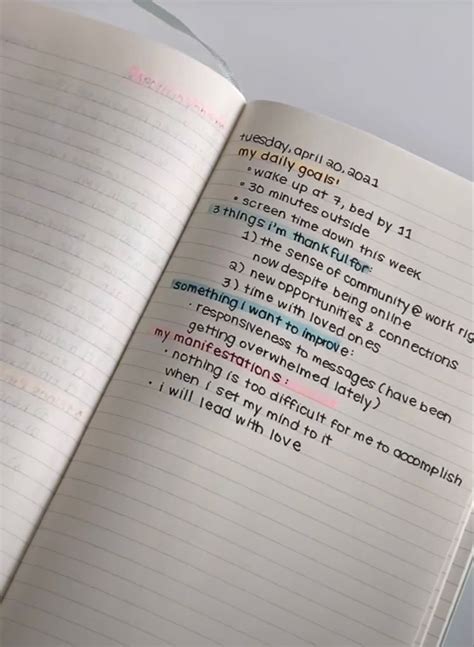 tuesday, april 20, 2021
my daily goals:
• wake up at 7, bed by 11
• 30 minutes outside
• screen time down this week
3 things i'm thankful for:
1) the sense of community @ work
now despite being online
2) new opportunities & connections
3) time with loved ones
something i want to improve:
• responsiveness to messages (have been
getting overwhelmed lately)
my manifestations:
• nothing is too difficult for me to accomplish
when i set my mind to it
• i will lead with love